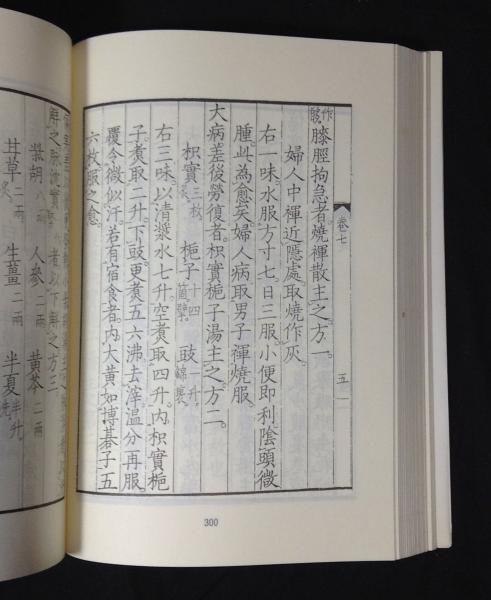 作
眵
膝脛拘急者燒褌散主之方一
婦人中褌近隱處取燒作灰
右一味水服方寸七日三服小便即利陰頭微
腫此為愈矣婦人病取男子褌燒服
大病差後勞復者枳實梔子湯主之方二
枳實三枚炙 梔子十四箇擘 豉一升綿裹
右三味以清漿水七升空煮取四升內枳實梔
子煮取二升下豉更煮五六沸去滓溫分再服
覆令微似汗若有宿食者內大黃如博碁子五
六枚服之愈
卷七
五
300
解之
者以下解之方三
柴胡八兩 人參二兩 黃芩二兩
甘草二兩炙 生薑二兩 半夏半升洗